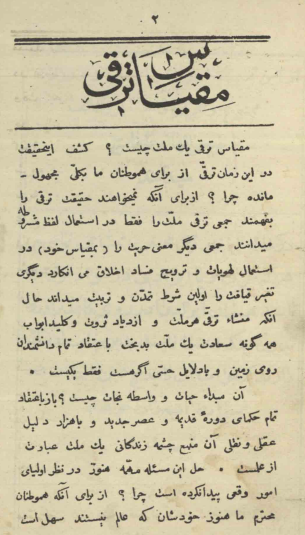 ۲
مقیاس ترقی
مقیاس ترقی یك ملت چیست ؟ کشف اینحقیقت
در این زمان ترقی از برای هموطنان ما بکلی مجهول -
مانده چرا ؟ از برای آنکه نمیخواهند حقیقت ترقی را
بفهمند جمعی ترقی ملت را فقط در استعمال لفظ مشروطه
میدانند جمعی دیگر معنی حریت را ( بمقیاس خود ) در
استعمال لهویات و ترویج فساد اخلاق می انکارد دیگری
تغیر قیافت را اولین شرط تمدن و تربیت میداند حال
آنکه منشاء ترقی هر ملت و ازدیاد ثروت و کلید ابواب
همه گونه سعادت یك ملت بدبخت باعتقاد تمام دانشمندان
روی زمین و بادلایل حتی اگر هست فقط یکیست •
آن مبداء حیات و واسطه نجات چیست ؟ باز باعتقاد
تمام حکمای دوره قدیمه و عصر جدید و باهزار دلیل
عقلی و نقلی آن منبع چشمه زندگانی یك ملت عبارت
از علمست • حل این مسئله مهمه هنوز در نظر اولیای
امور وقعی پیدانکرده است چرا ؟ از برای آنکه هموطنان
محترم ما هنوز خودشان که عالم نیستند سهل است